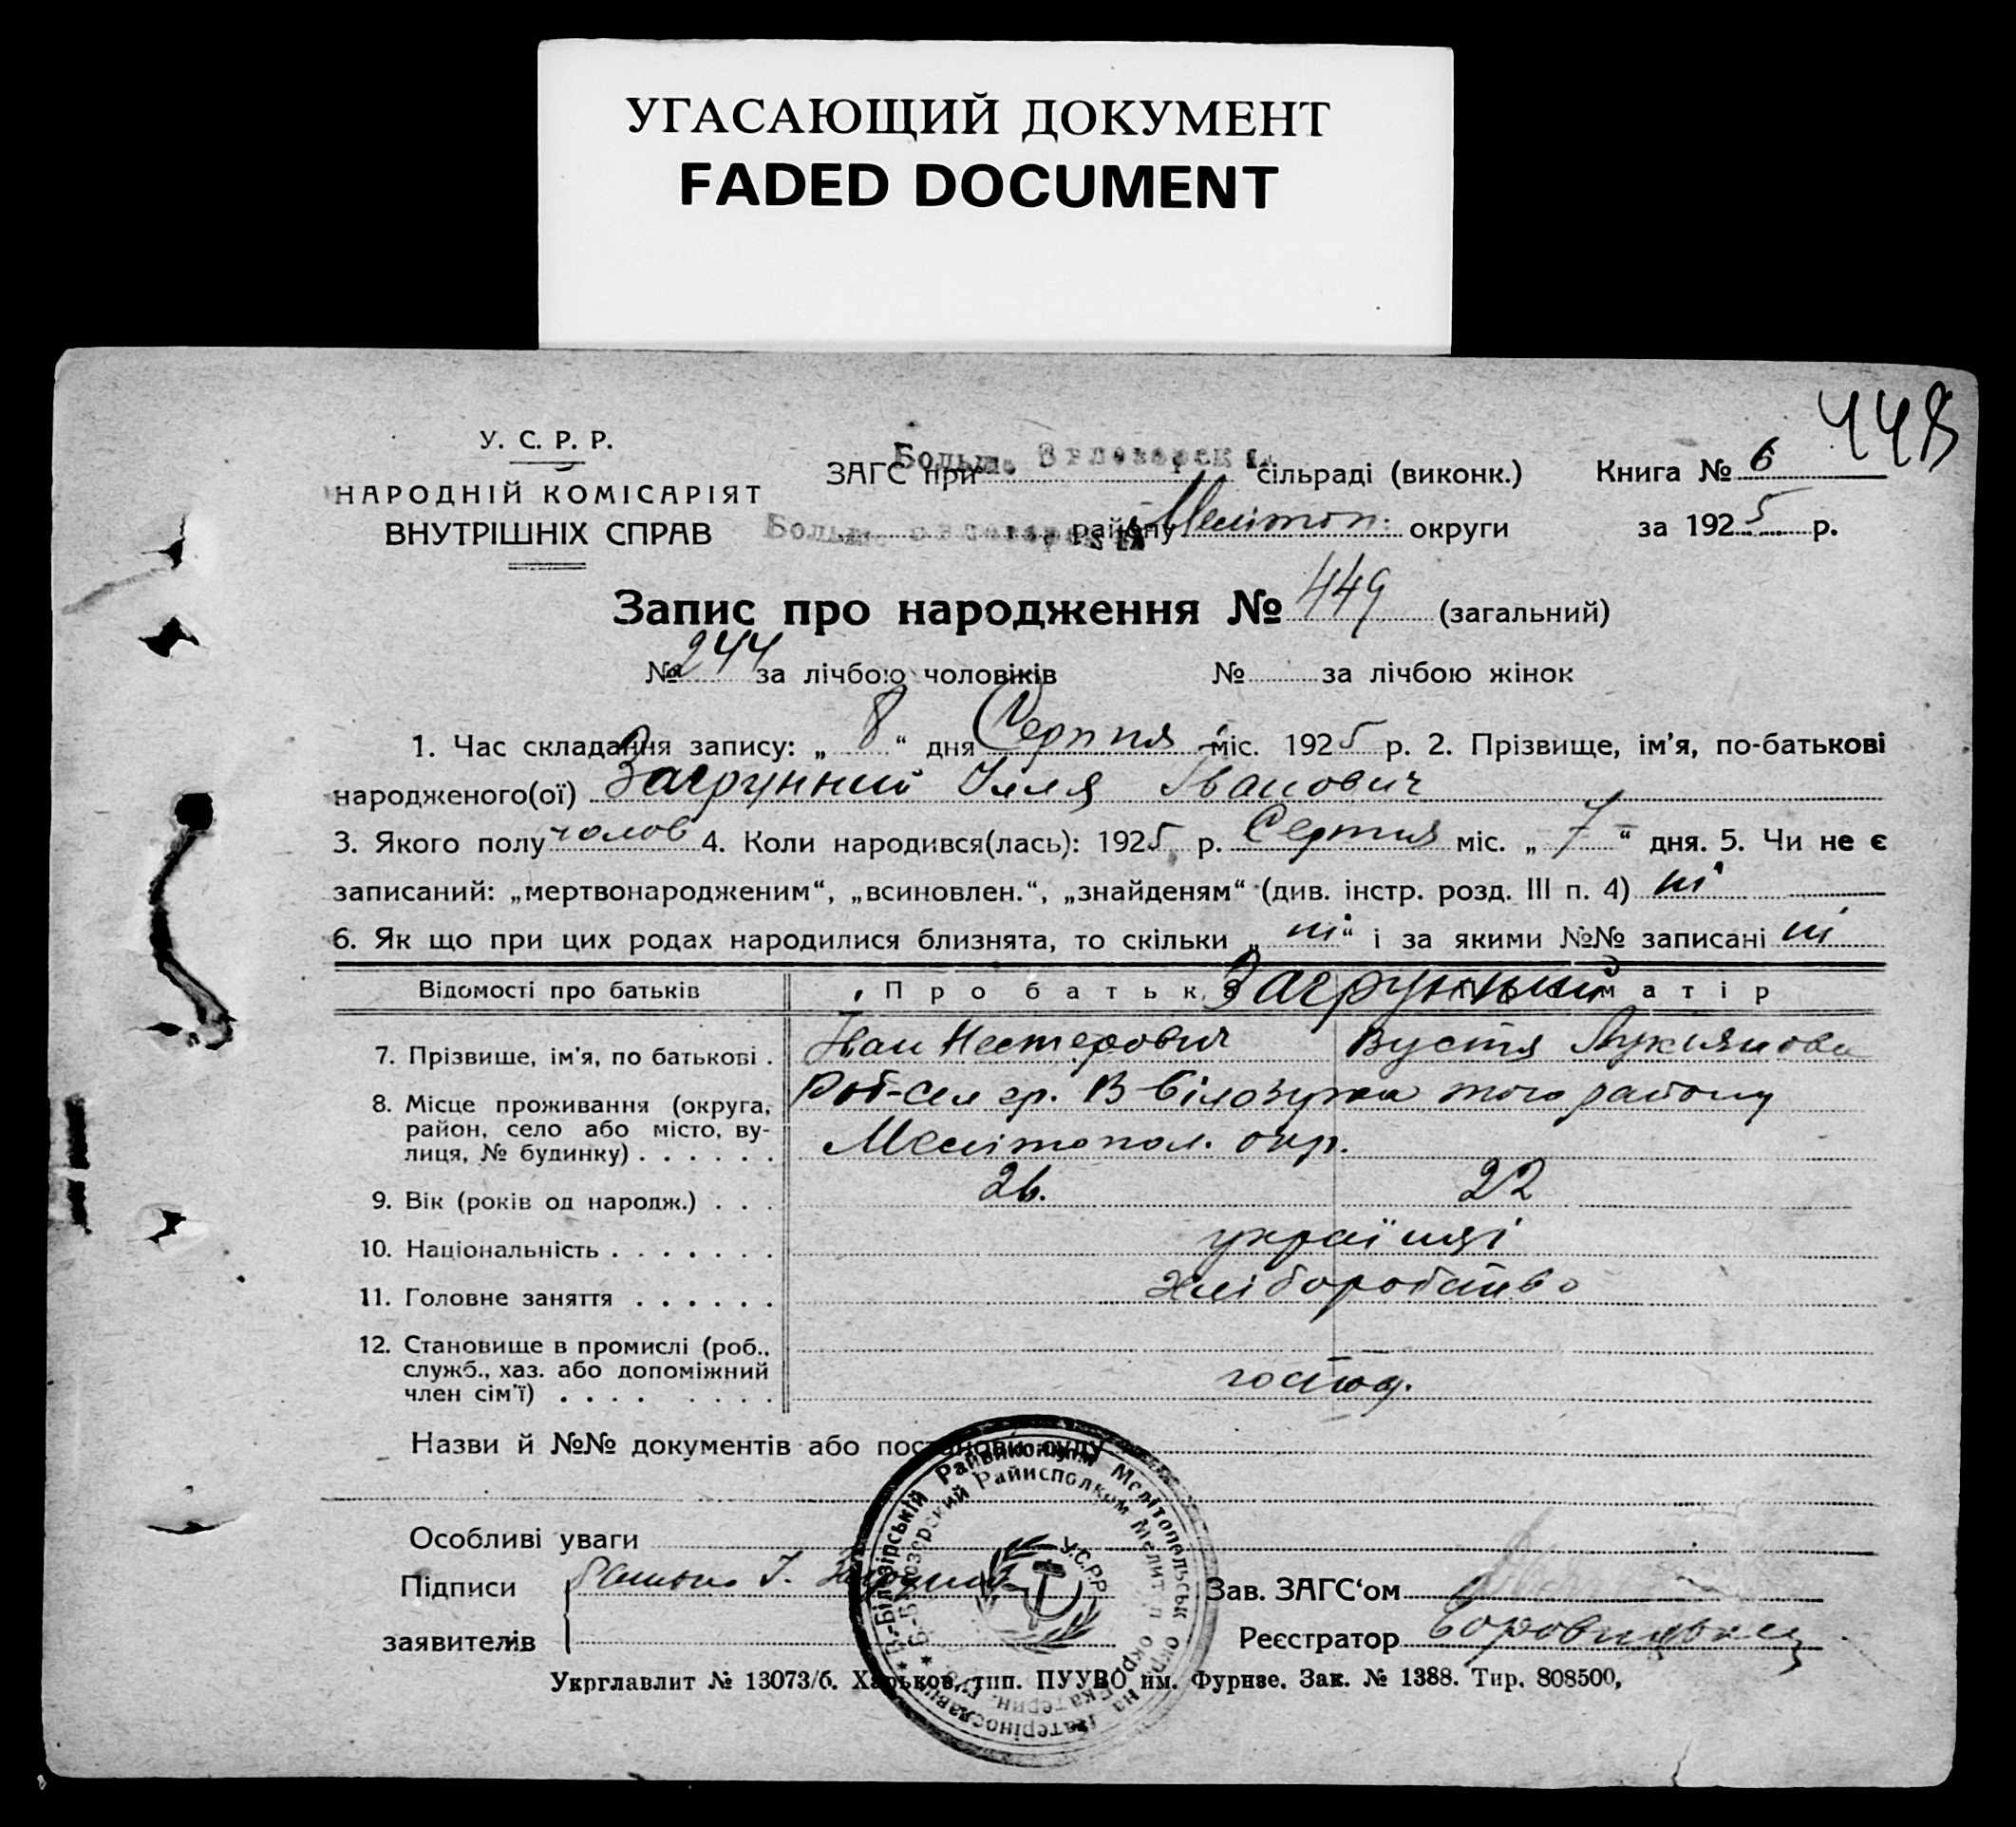 УГАСАЮЩИЙ ДОКУМЕНТ
FADED DOCUMENT
448
У. С. Р. Р.
НАРОДНІЙ КОМІСАРІЯТ
ВНУТРІШНІХ СПРАВ
ЗАГС при Больше сільраді (виконк.) Книга № 6
Больше району Мелітоп. округи за 1925 р.
Запис про народження № 449 (загальний)
№ 244 за лічбою чоловіків № за лічбою жінок
1. Час складання запису: „ 8 “ дня Серпня міс. 1925 р. 2. Прізвище, ім'я, по-батькові
народженого(ої) Загрунний Ілля Іванович
3. Якого полу чолов 4. Коли народився(лась): 1925 р. Серпня міс. „ 7 “ дня. 5. Чи не є
записаний: „мертвонародженим“, „всиновлен.“, „знайденям“ (див. інстр. розд. III п. 4) ні
6. Як що при цих родах народилися близнята, то скільки „ ні “ і за якими №№ записані ні
Відомості про батьків Про батька Про матір
Загрунний
7. Прізвище, ім'я, по батькові . Іван Нестерович Вустя Лукиянова
8. Місце проживання (округа, район, село або місто, вулиця, № будинку) . . . . . . В Білозірка того району
Мелітопол. окр.
9. Вік (років од народж.) . . . 26. 22
10. Національність . . . . . . . українці
11. Головне заняття . . . . . . хліборобство
12. Становище в промислі (роб.,
служб., хаз. або допоміжний
член сім'ї) . . . . . . . . госпо
Назви й №№ документів або постанови суду
Особливі уваги
Підписи
Зав. ЗАГС‘ом
заявителів
Реєстратор
Укрглавлит № 13073/б. Харьков, тип. ПУУВО им. Фрунзе. Зак. № 1388. Тир. 808500,
Райвиконком Мелітопольськ окр.
Райисполком Мелитоп окр
У.С.Р.Р.